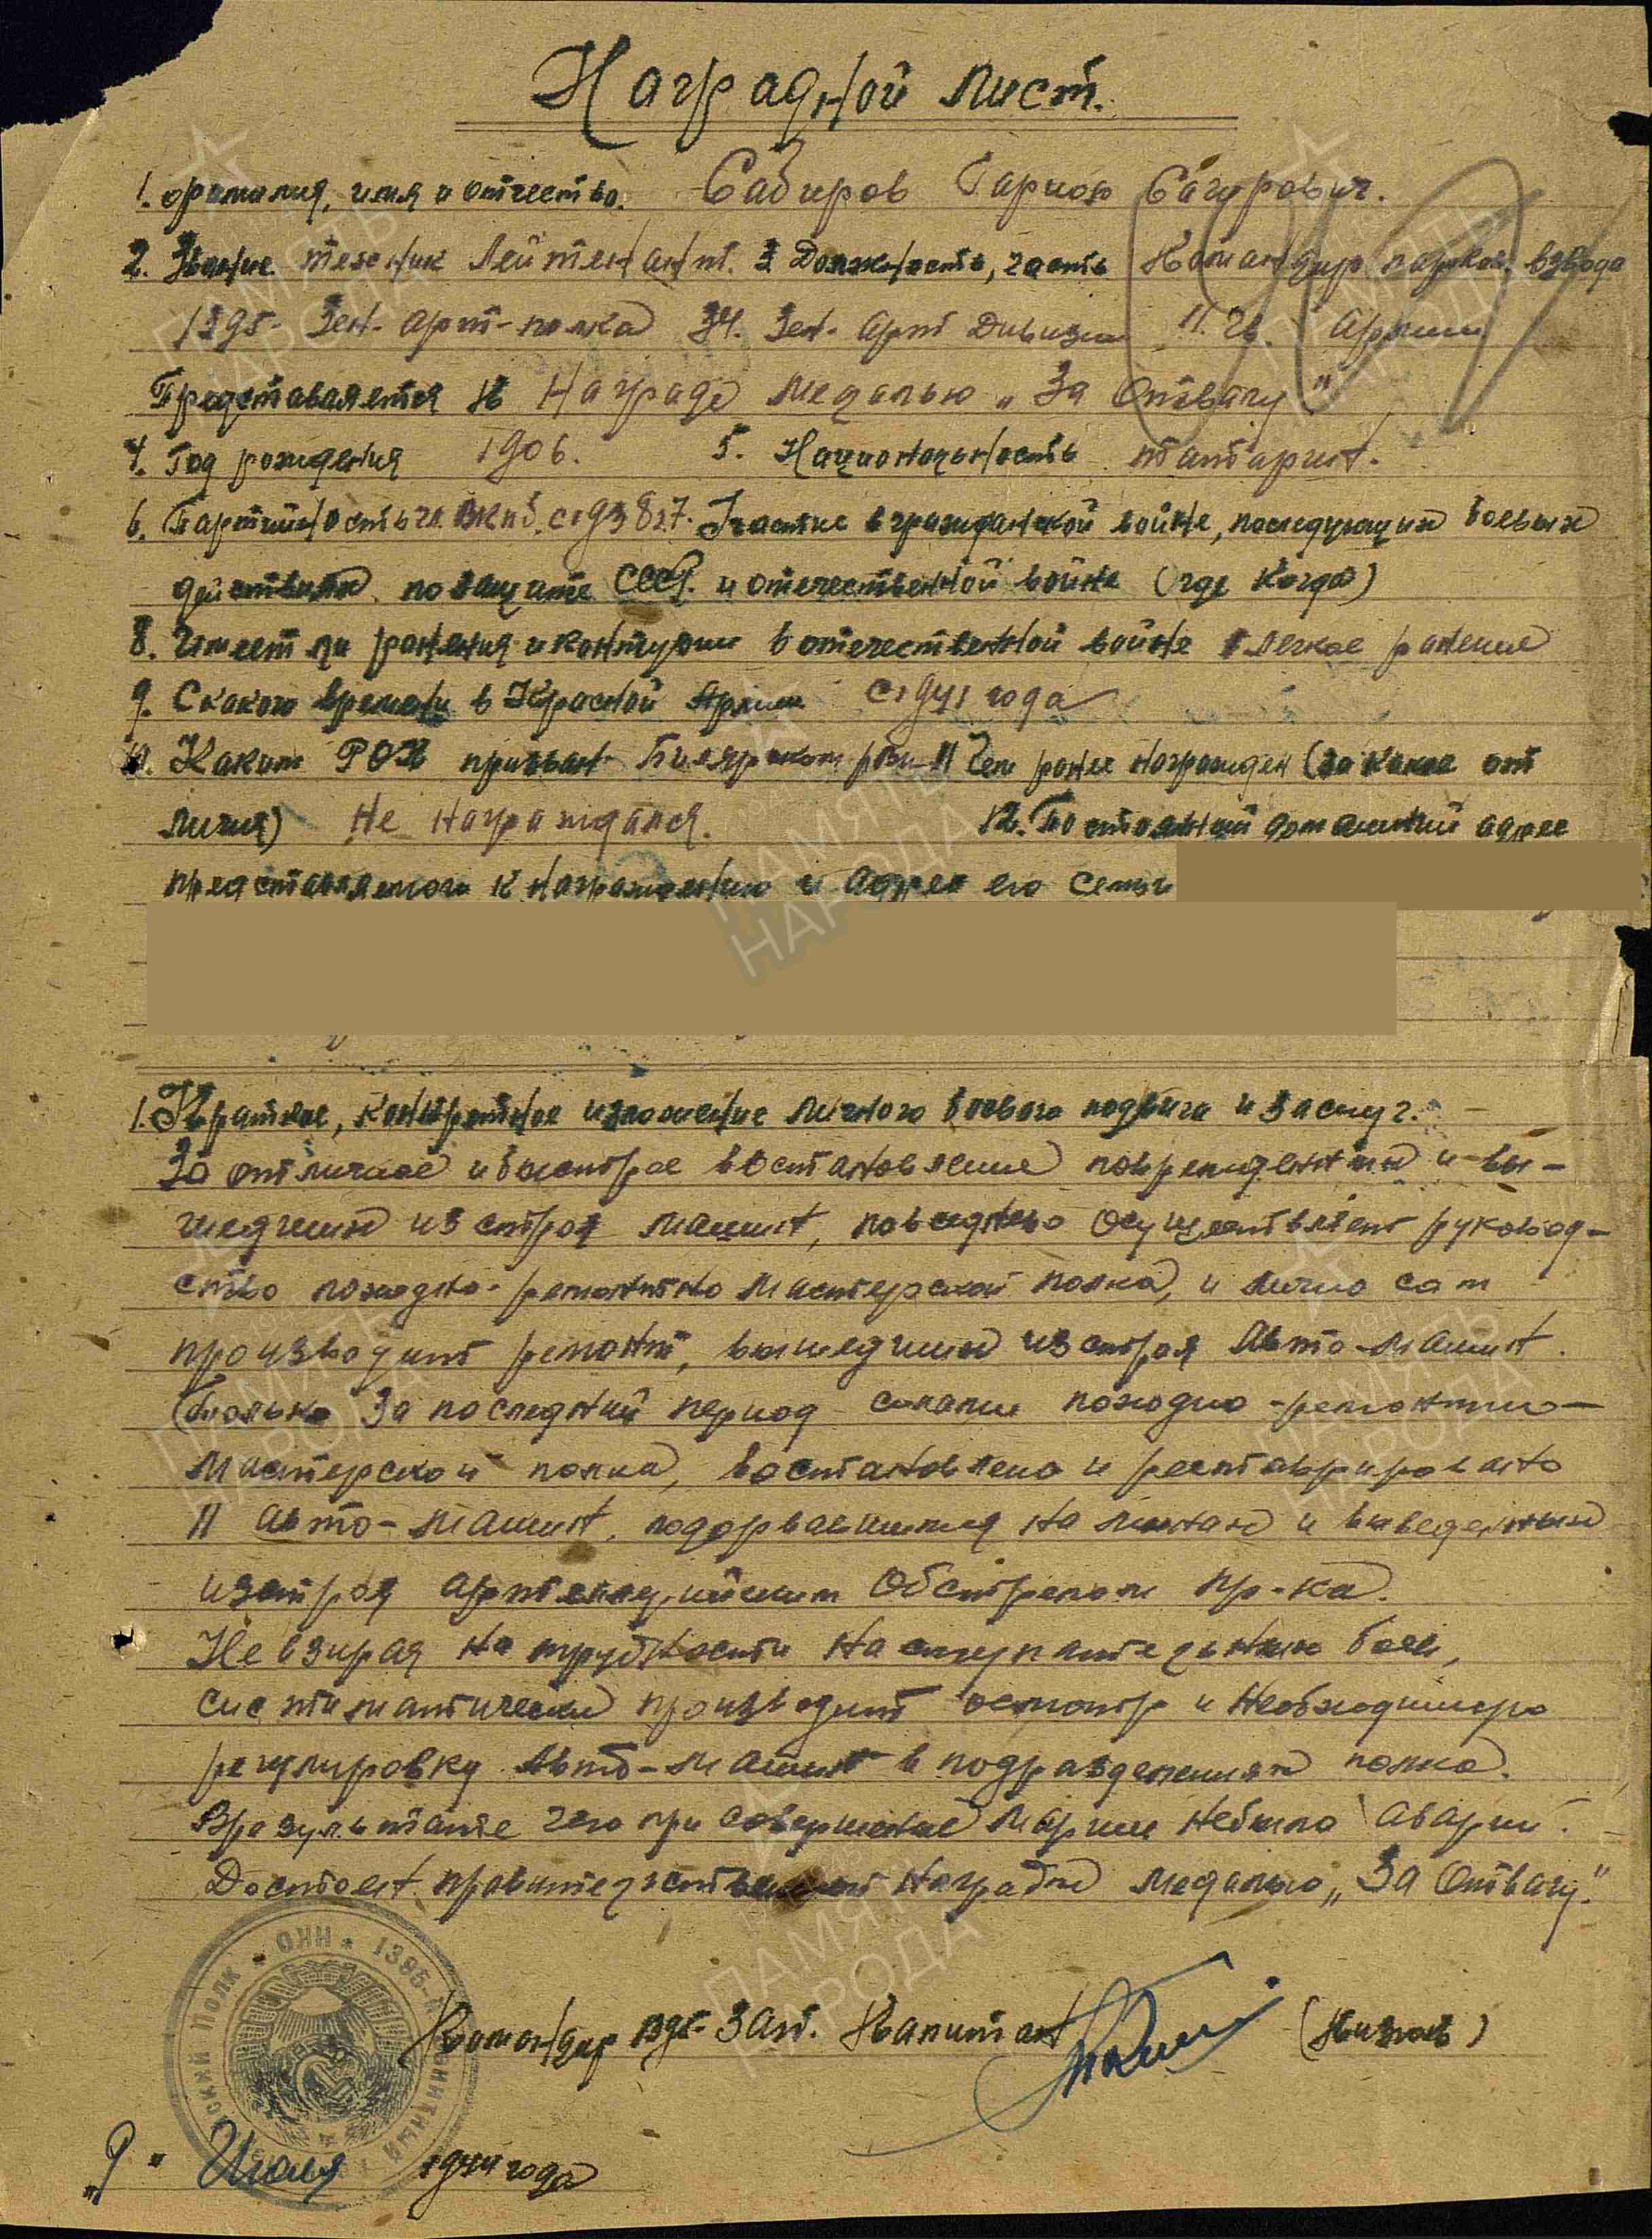 Наградной лист.
1. фамилия, имя и отчество. Сабиров Гариф Сагирович.
2. Звание техник Лейтенант. 3 Должность, часть Командир парков. взвода
1395- Зен. арт-полка 34. Зен. Арт Дивизии 11. Гв. Армии
Представляется к Награде медалью „За Отвагу"
4. Год рождения 1906. 5. Национальность татарин.
6. Партийность чл. ВКПб. с 1938 г 7. Участие в гражданской войне, последующих боевых
действиях по защите СССР. и отечественной войне (где когда)
8. Имеет ли ранения и контузии в отечественной войне легкое ранение
9. С какого времени в Красной Армии с 1941 года
10. Каким РВК призван Билярским рвк 11 Чем ранее награжден (за какие от
личия) Не награждался. 12. Постоянный домашний адрес
представляемого к награждению и адрес его семьи
1. Краткое, конкретное изложение личного боевого подвига и заслуг.
За отличное и быстрое востановление поврежденных и вы-
шедших из строя машин, повседнево осуществляет руковод-
ство походно-ремонтно мастерской полка, и лично сам
производит ремонт, вышедших из строя Авто-машин.
Только за последний период силами походно-ремонтно-
мастерской полка, востановлено и реставрировано
11 авто-машин, подорвавшихся на минах и выведенных
из строя артиллерийским обстрелом пр-ка.
Не взирая на трудности наступательных боев,
систиматически производит осмотр и необходимую
регулировку Авто-машин в подразделениях полка.
В результате чего при совершение марша не было аварий.
Достоин правительственной Награды медалью „За Отвагу".
Командир 1395 зап. Капитан
„9" Июля 1944 года
НКО * 1395-й
ЗЕНИТНЫЙ
ПОЛК